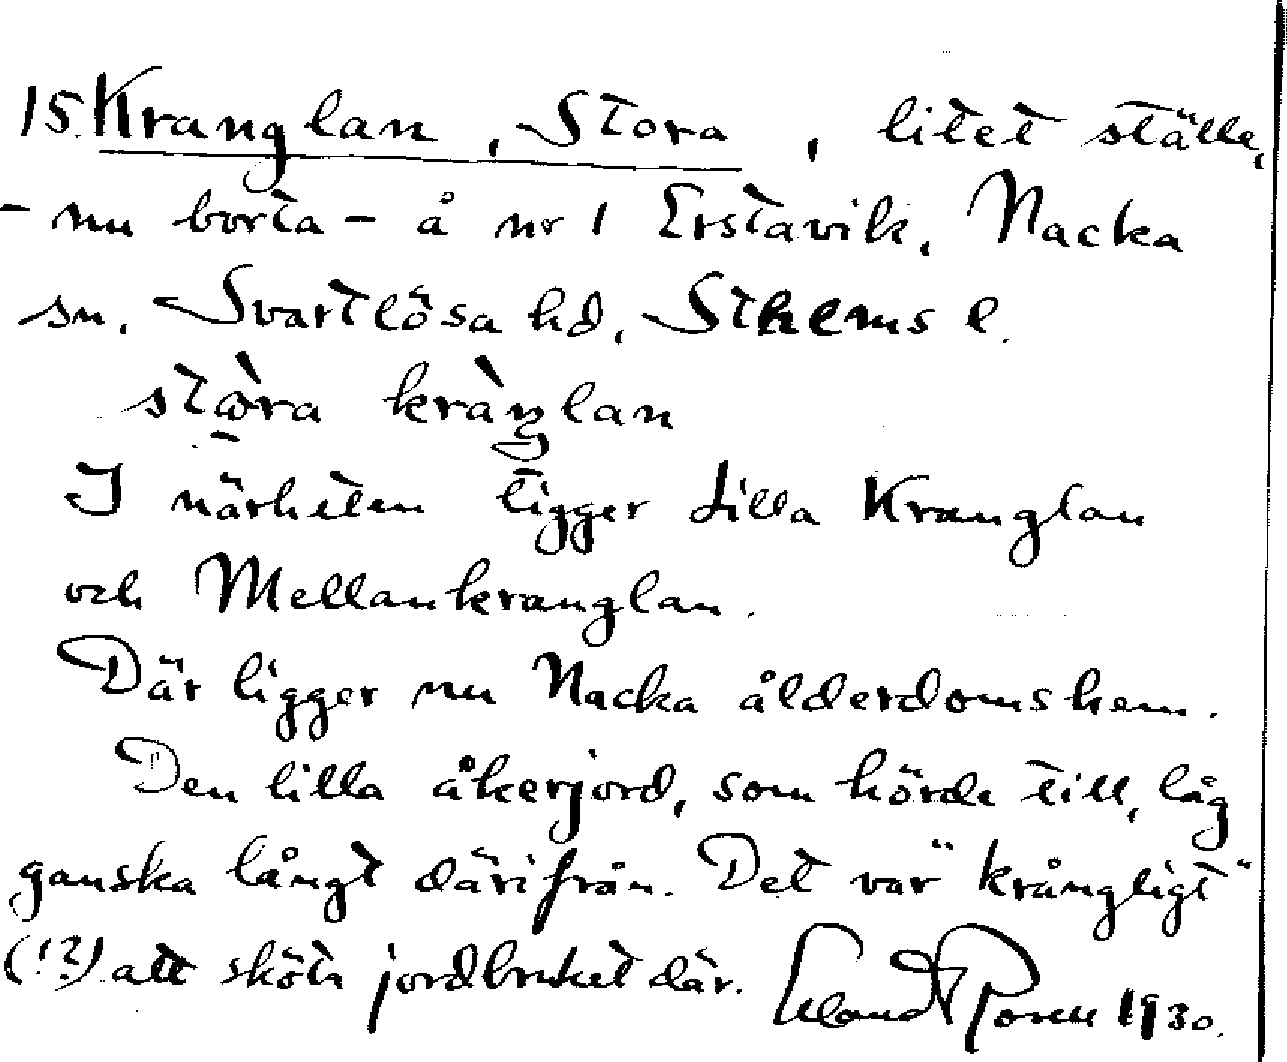 15. Kranglan, Stora, litet ställe,
- nu borta - å nr 1 Erstavik, Nacka
sn, Svartlösa hd, Sthlms l.
stòra kràŋlan
I närheten ligger Lilla Kranglan
och Mellankranglan.
Där ligger nu Nacka ålderdomshem.
Den lilla åkerjord, som hörde till, låg
ganska långt därifrån. Det var "krångligt"
(!?) att sköta jordbruket där. Erland Rosell 1930.